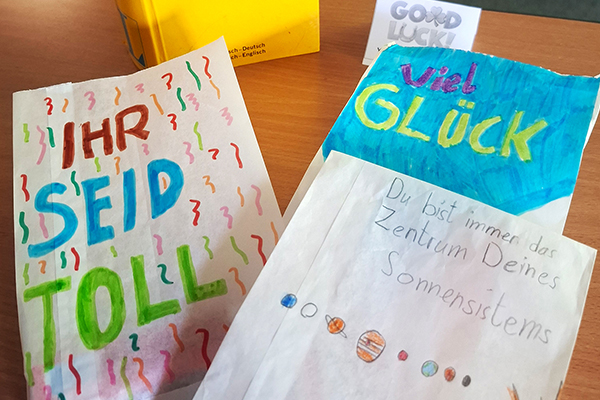 ch-Deutsch
ch-Englisch
GOOD
LUCK!
IHR
SEID
TOLL
Viel
GLÜCK
Du bist immer das
Zentrum Deines
Sonnensistems